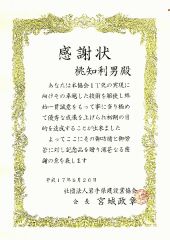 感謝状
桃知利男殿
あなたは本協会IT化の実現に
向けその卓越した技術を駆使し終
始一貫誠意をもって事に当り極め
て優秀な成果を上げられ初期の目
的を達成することが出来ました
よってここにその御功績と御労
苦に対し記念品を贈り深甚なる感
謝の意を表します
平成17年5月20日
社団法人岩手県建設業協会
会長 宮城政章